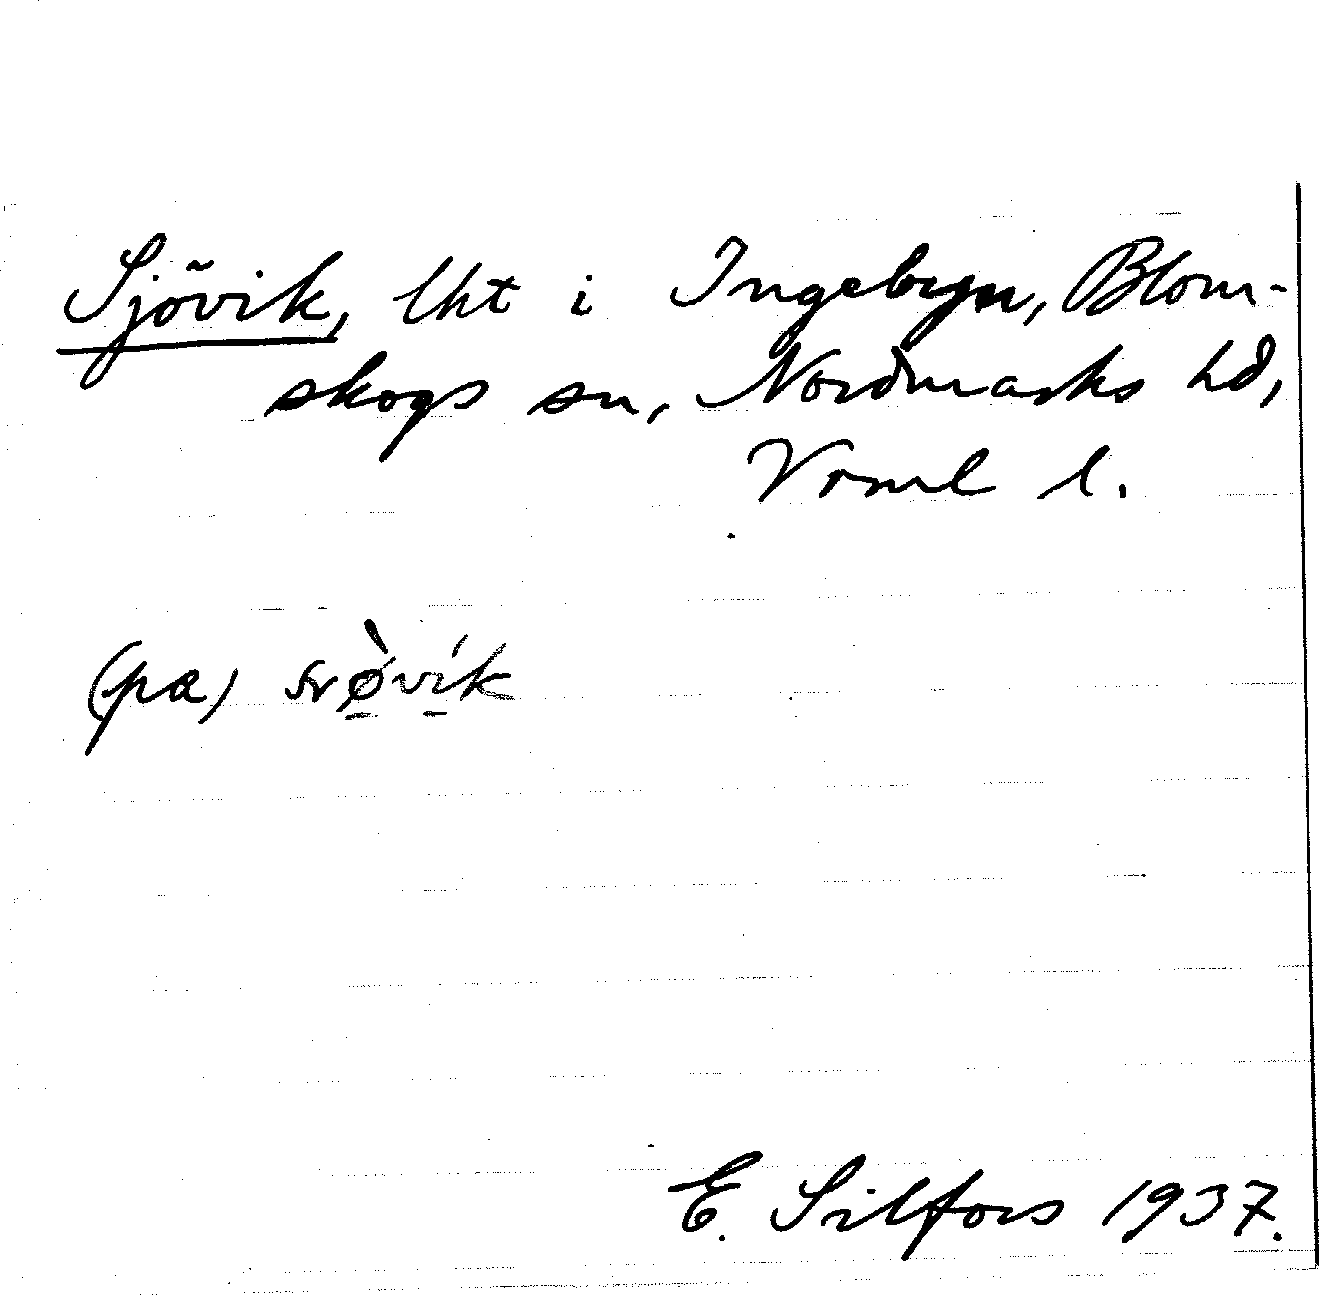 Sjövik, lht i Ingebyn, Blom-
skogs sn, Nordmarks hd,
Vrml l.
(pa)
E. Silfors 1937.